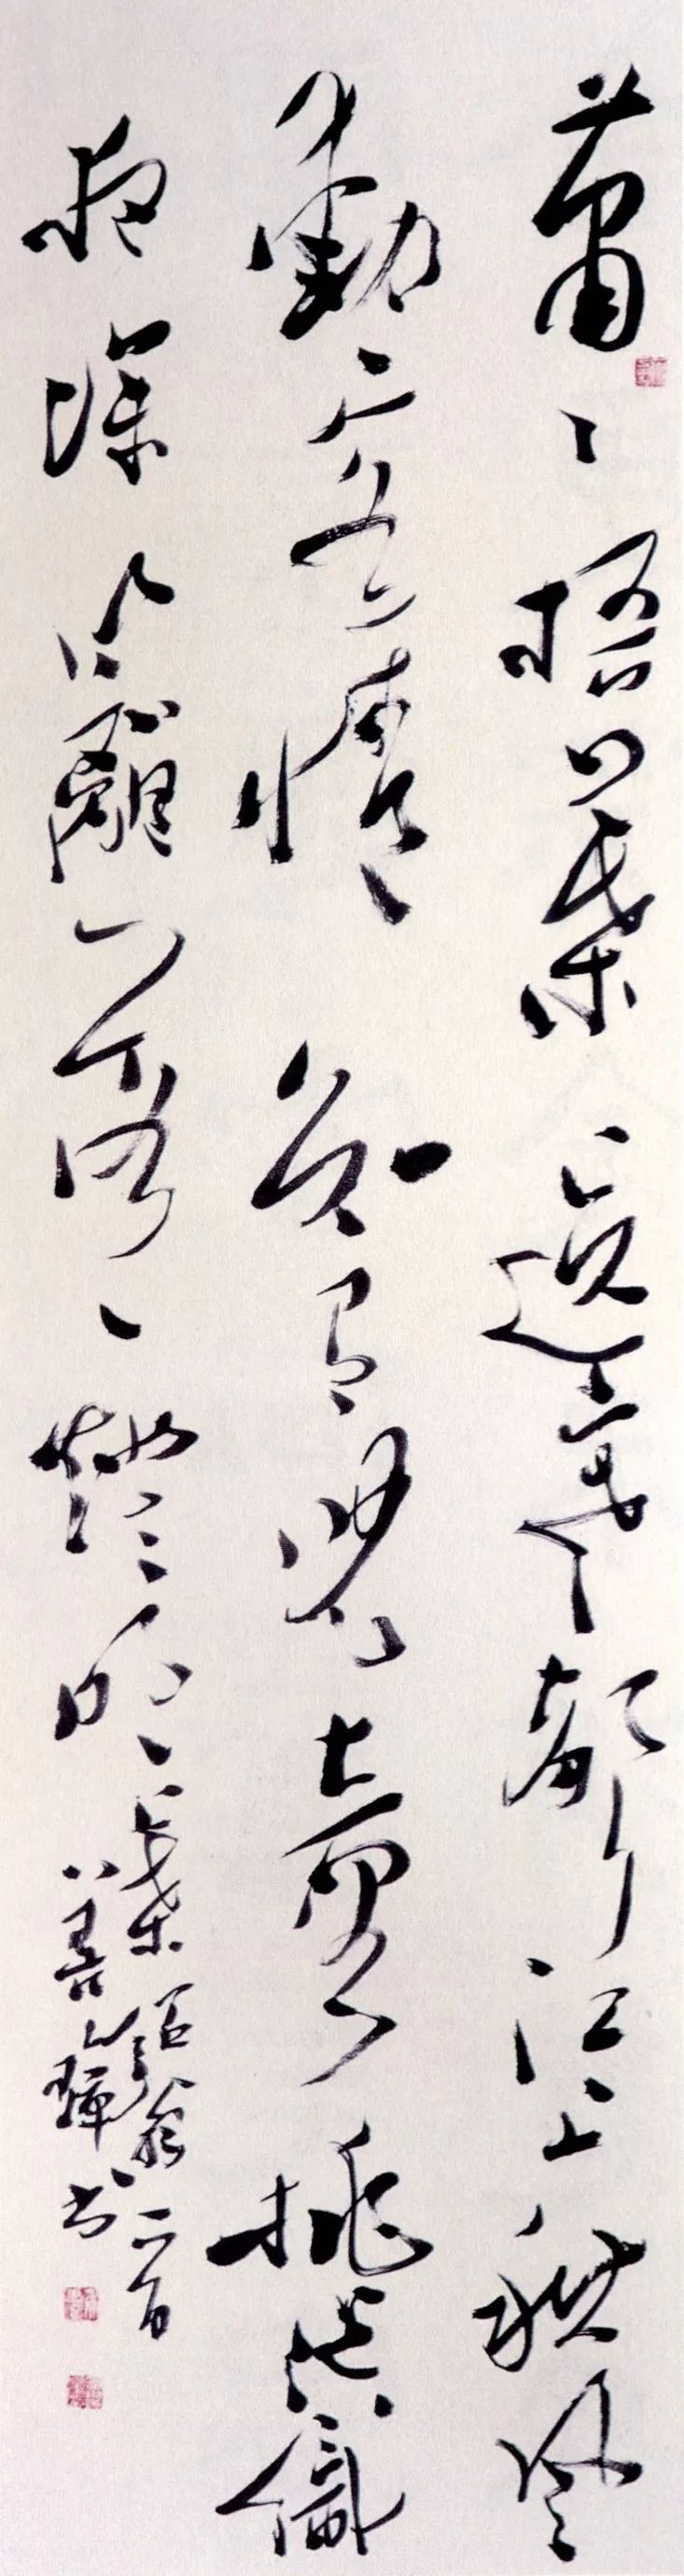 蕭々梧葉送寒聲江上秋風
動客情知有兒童挑促織
夜深籬落一燈明葉紹翁一首
善璋书